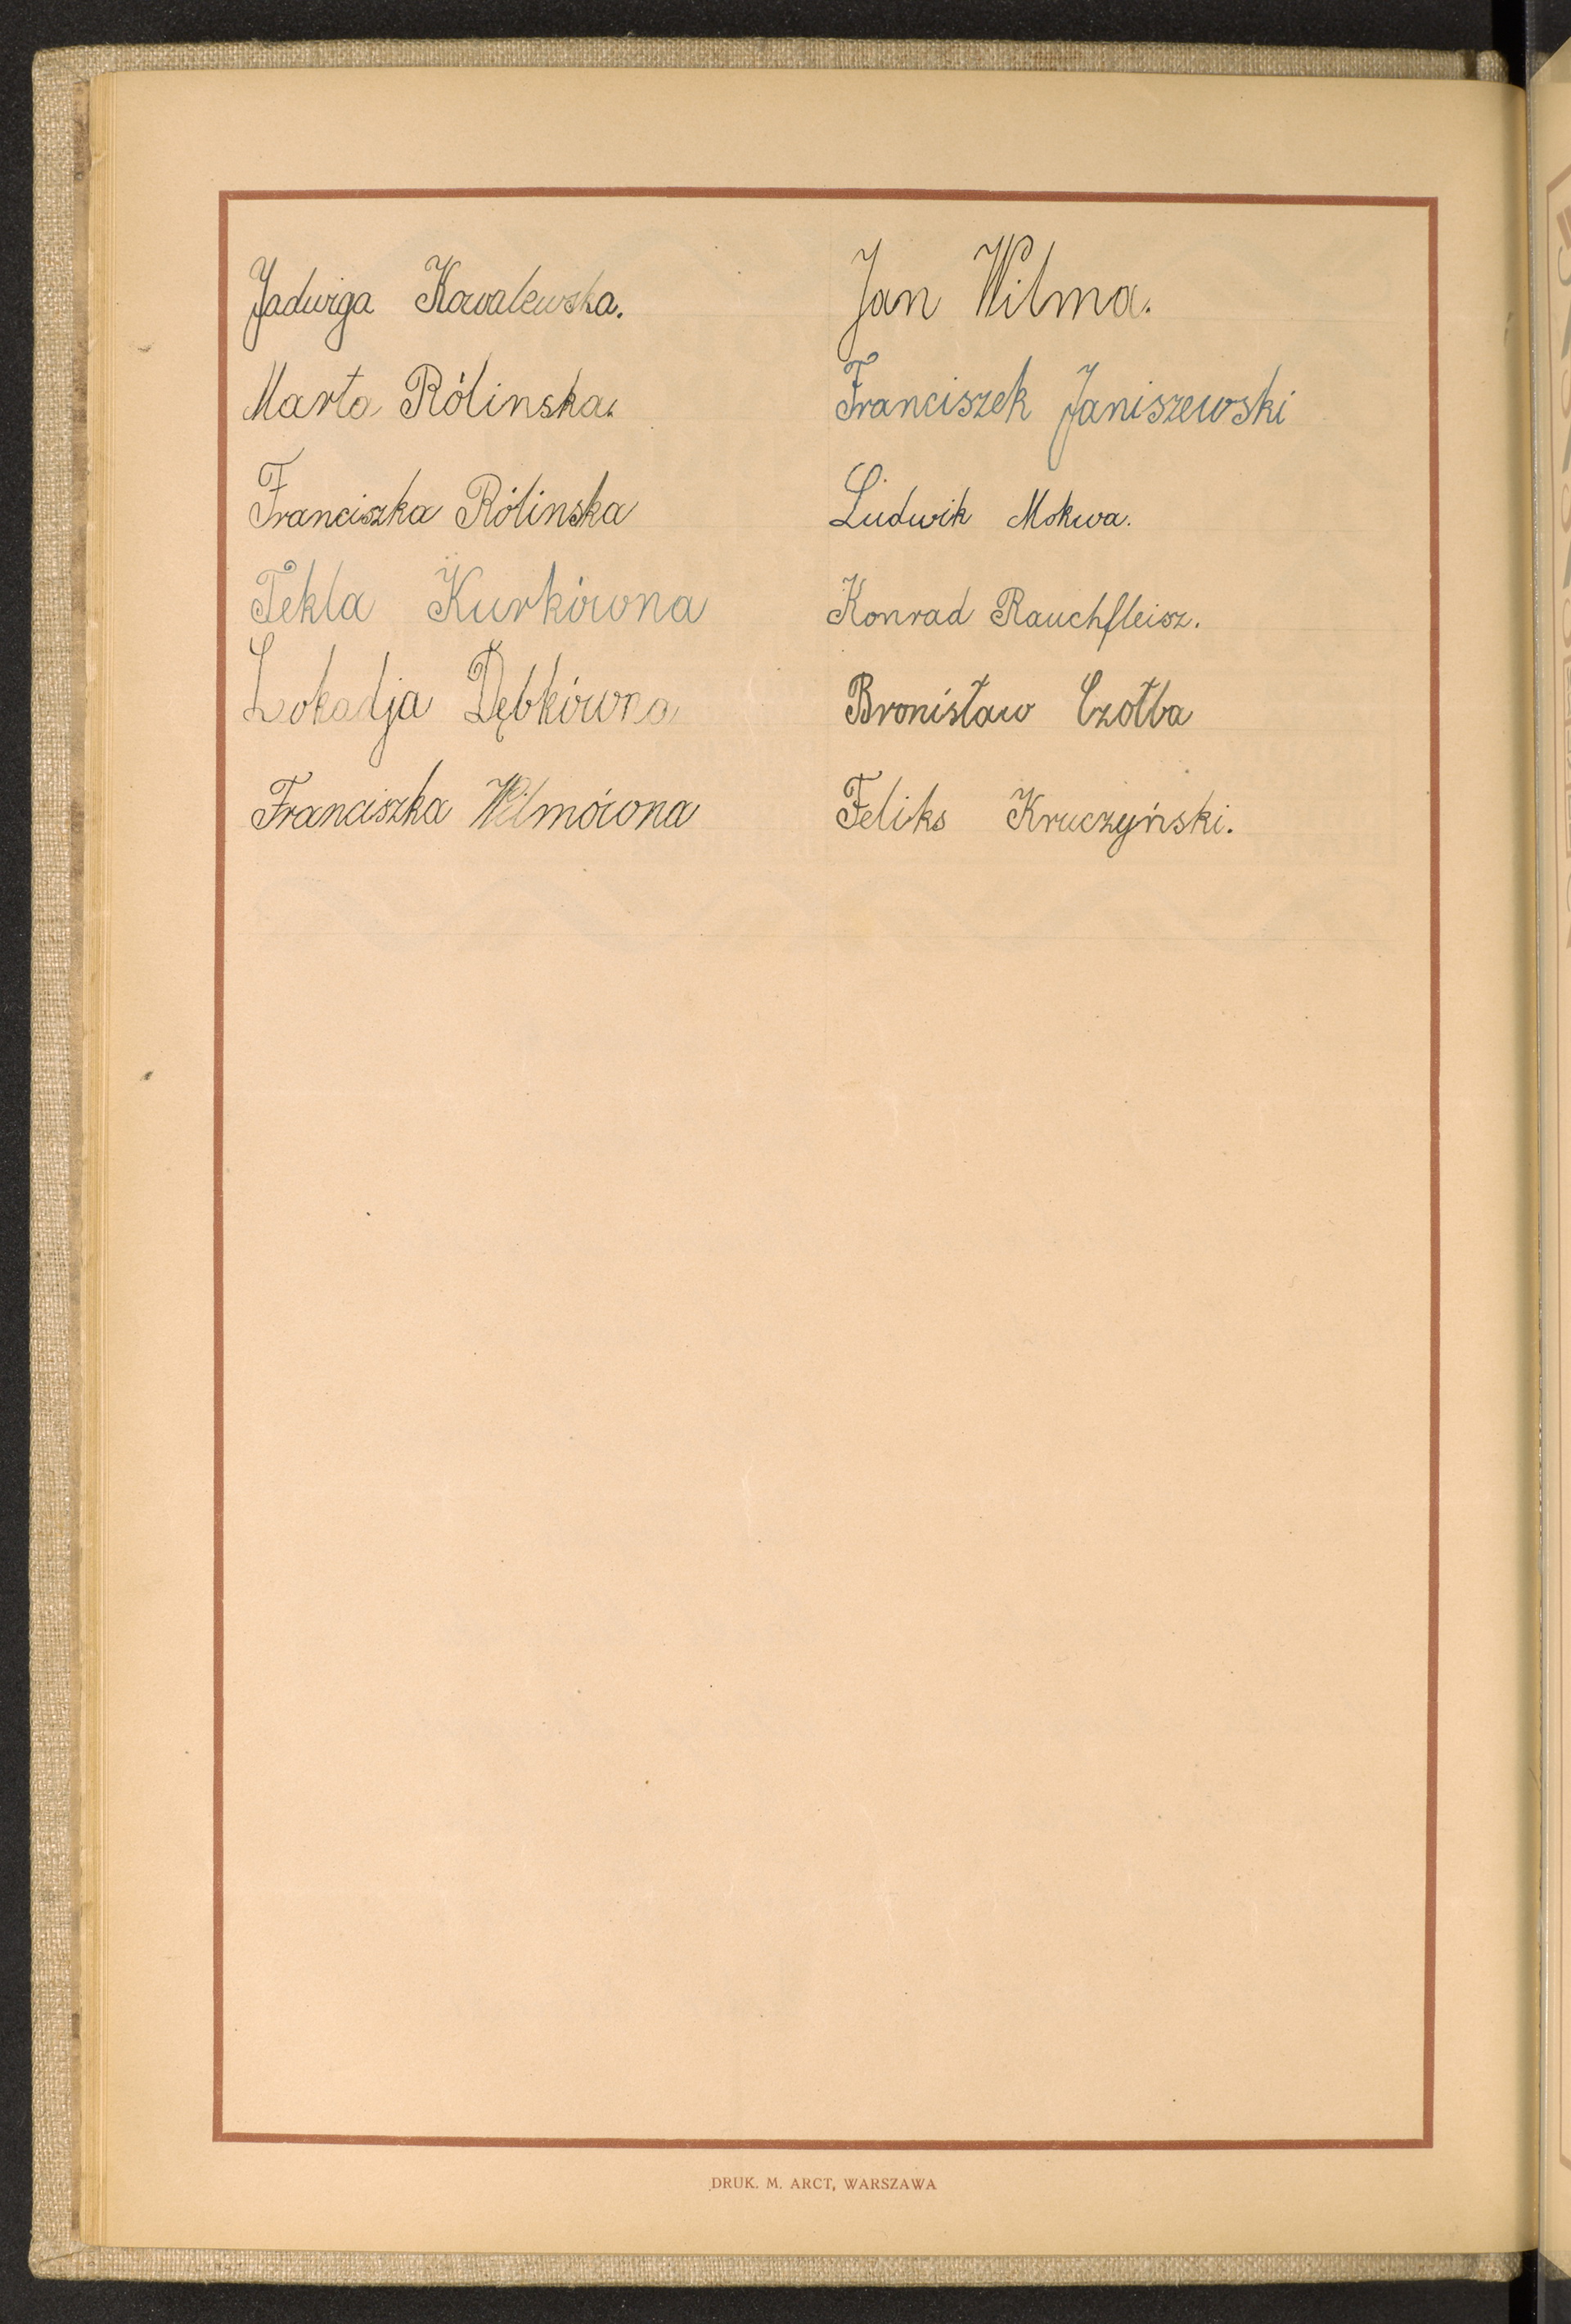 Jadwiga Kowalewska.
Marta Rólinska.
Franciszka Rólinska
Tekla Kurkówna
Lokadja Dębkówna
Franciszka Wilmówna
Jan Wilma.
Franciszek Janiszewski
Ludwik Mokwa.
Konrad Rauchfleisz.
Bronisław Czołba
Feliks Kruczyński.
DRUK. M. ARCT, WARSZAWA